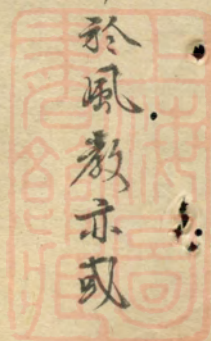 於風教亦或